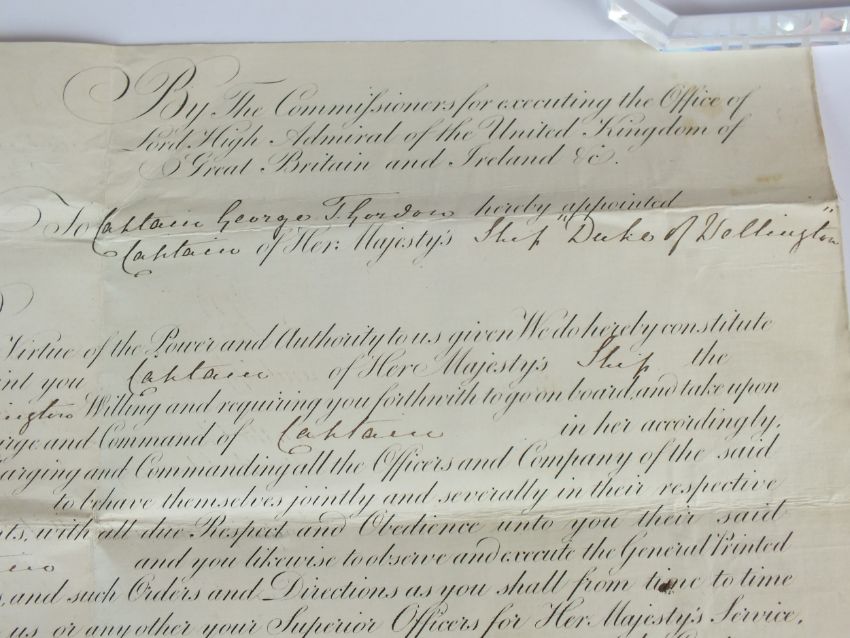 By The Commissioners for executing the Office of
Lord High Admiral of the United Kingdom of
Great Britain and Ireland &c.
To Captain George T. Gordon hereby appointed
Captain of Her Majesty's Ship "Duke of Wellington"
Virtue of the Power and Authority to us given We do hereby constitute
you Captain of Here Majesty's Ship the
Willing and requiring you forthwith to go on board and take upon
and Command of Captain in her accordingly.
and Commanding all the Officers and Company of the said
to behave themselves jointly and severally in their respective
with all due Respect and Obedience unto you their said
and you likewise to observe and execute the General Printed
and such Orders and Directions as you shall from time to time
us or any other your Superior Officers for Her Majesty's Service.